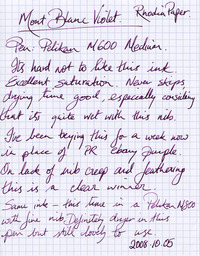 Mont Blanc Violet. Rhodia Paper.
Pen: Pelikan M600 Medium.
It's hard not to like this ink
Excellent saturation. Never skips
drying time good, especially considering
that its quite wet with this nib.
I've been trying this for a week now
in place of PR Ebony Purple.
On lack of nib creep and feathering
this is a clear winner.
Same ink - this time in a Pelikan M800
with fine nib. Definitely dryer in this
pen but still lovely to use.
2008.10.05